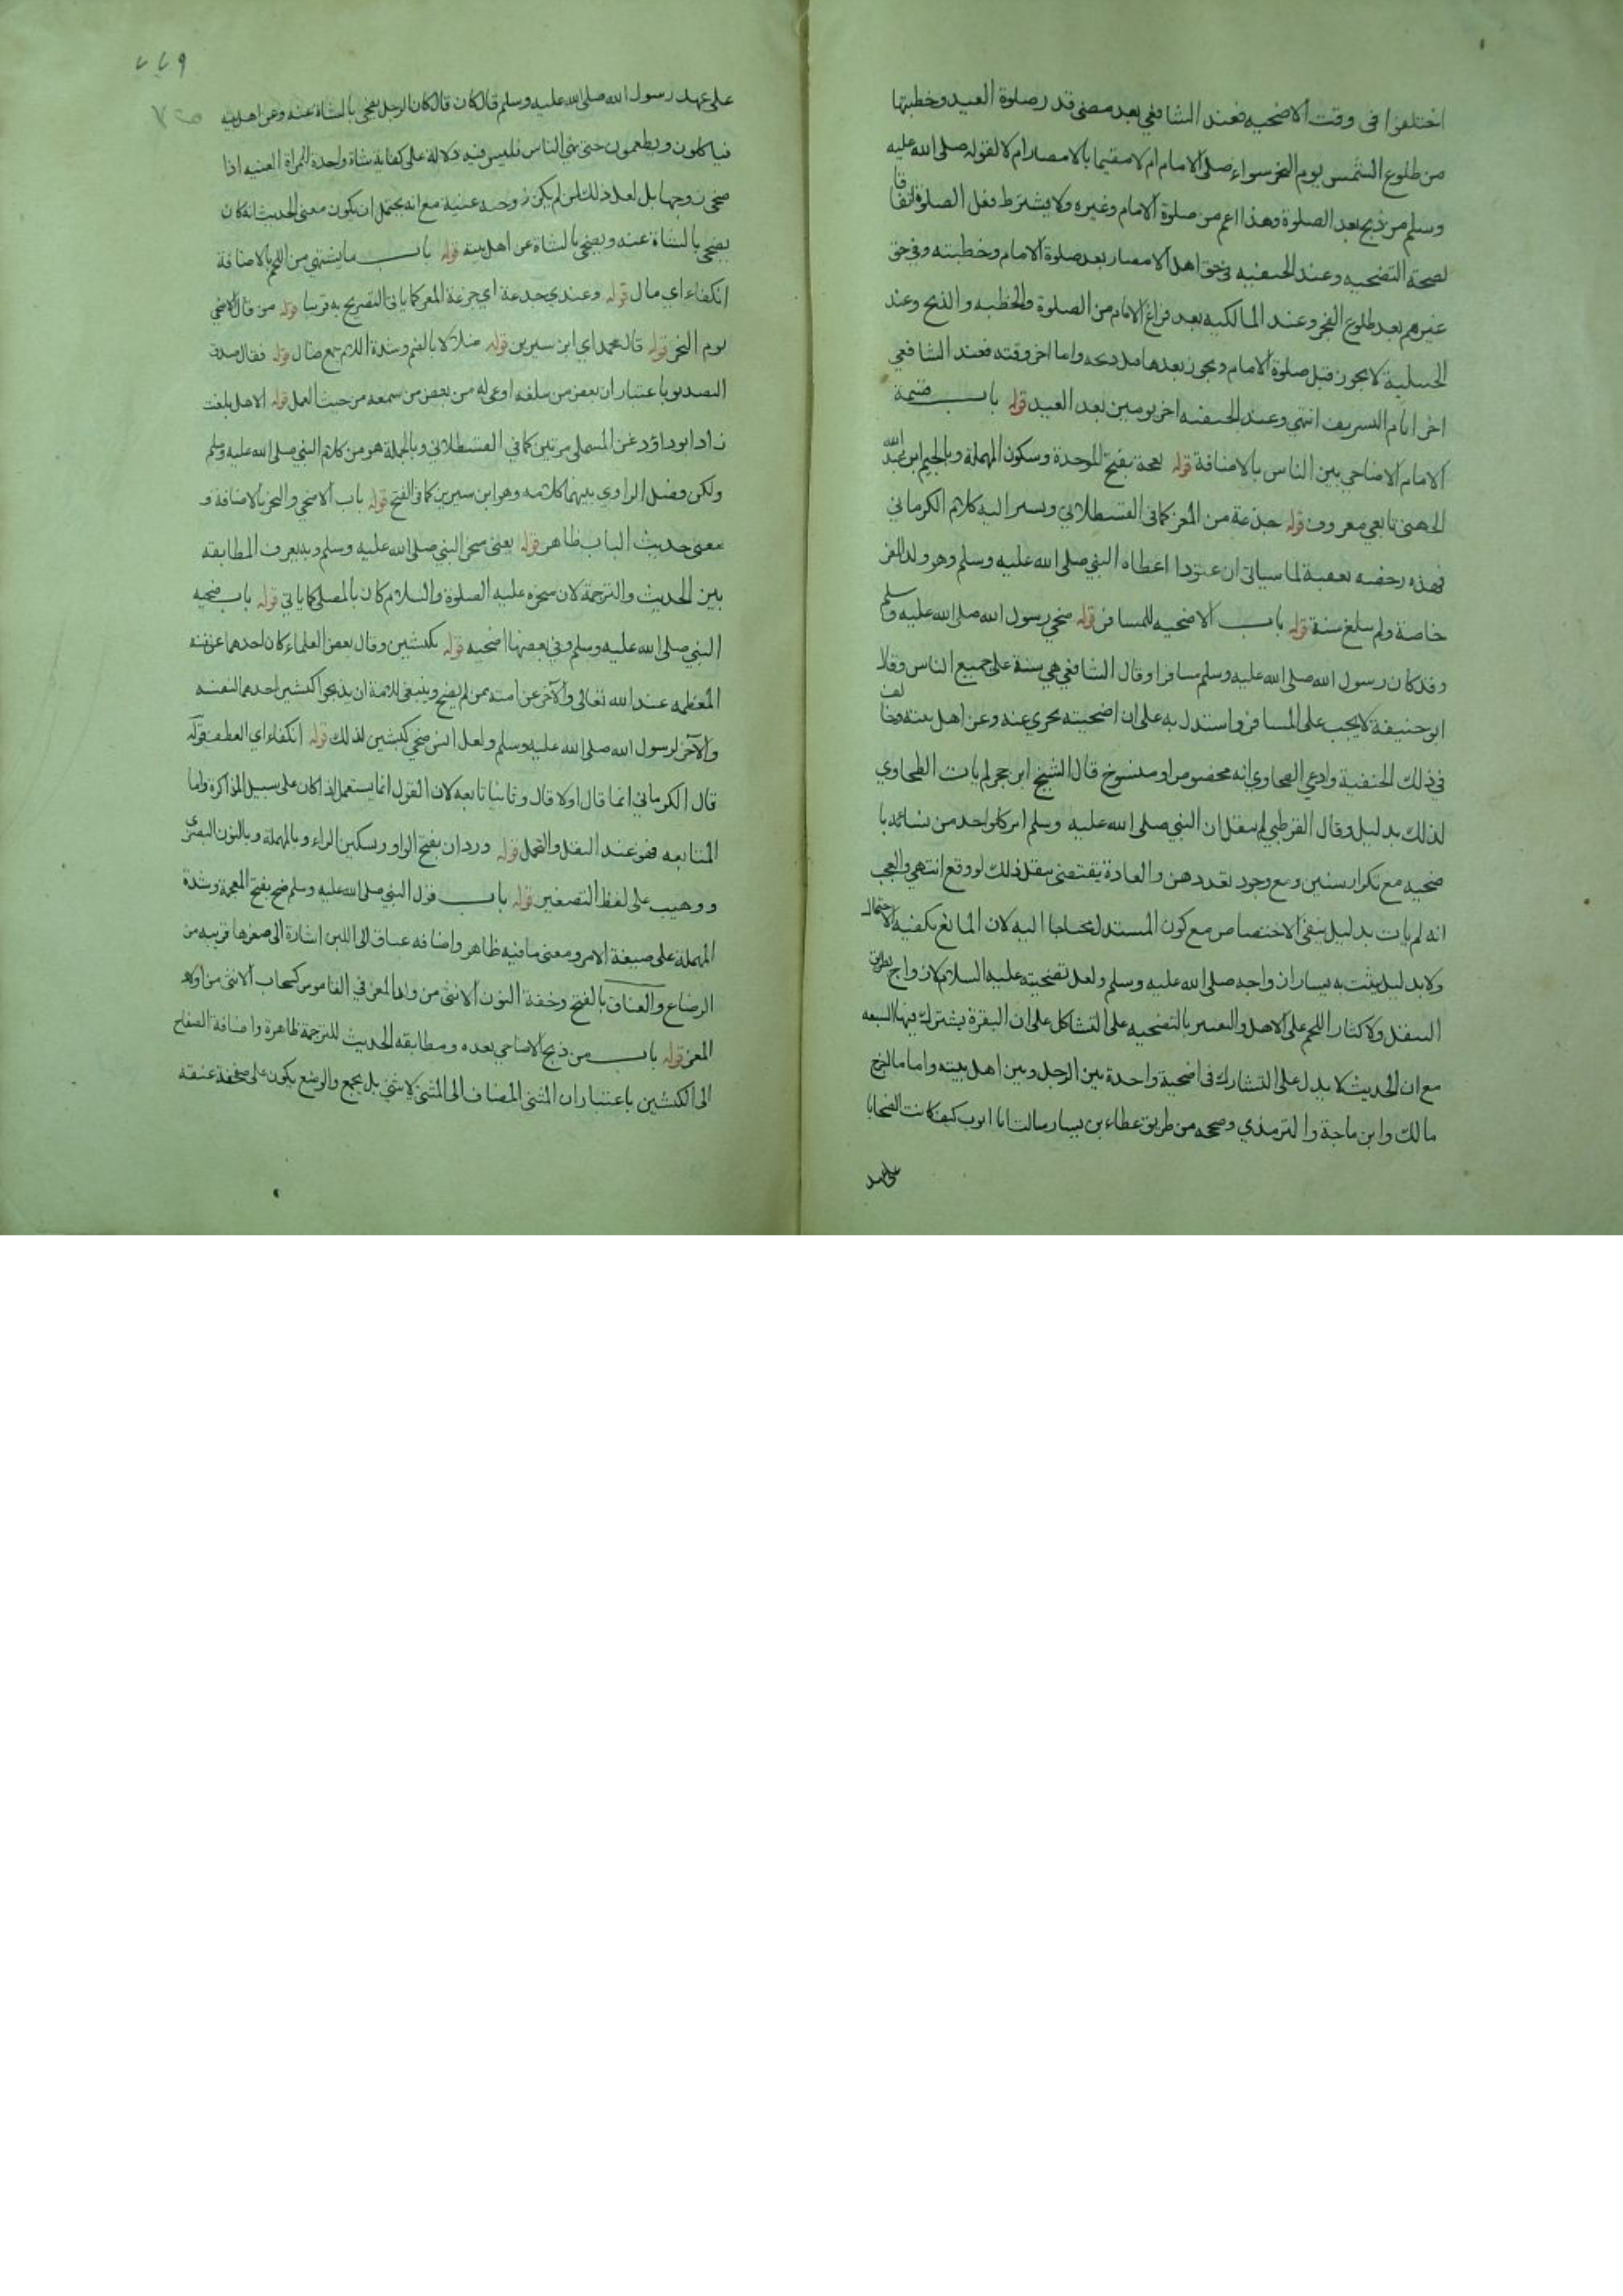 اختلفوا فى وقت الاضحيه فعند الشافعي بعد مضى قدر صلوة العيد وخطبتها
من طلوع الشمس يوم النحر سواء صلى الامام ام لا مقيما بالامصار ام لا لقوله صلى الله عليه
وسلم من ذبح بعد الصلوة وهذا اعم من صلوة الامام وغيره ولا يشترط فعل الصلوة اتفاقا
لصحة التضحيه وعند الحنفيه فى حق اهل الامصار بعد صلوة الامام وخطبته وفي حق
غيرهم بعد طلوع الفجر وعند المالكيه بعد فراغ الامام من الصلوة والخطبه والذبح وعند
الحنبلية لا يجوز قبل صلوة الامام ويجوز بعدها قبل ذبحه واما اخر وقته فعند الشافعي
اخر ايام التشريق انتهى وعند الحنفيه اخر يومين بعد العيد قوله باب قسمة
الامام الاضاحي بين الناس بالاضافة قوله بعجة بفتح الموحدة وسكون المهملة وبالجيم ابن عبد الله
الجهنى تابعي معروف قوله جذعة من المعز كما فى القسطلانى ويشير اليه كلام الكرماني
فهذه رخصه لعقبة لما سياتى ان عتودا اعطاه النبي صلى الله عليه وسلم وهو ولد المعز
خاصة ولم يبلغ سنة قوله باب الاضحيه للمسافر قوله ضحى رسول الله صلى الله عليه وسلم
وقد كان رسول الله صلى الله عليه وسلم مسافرا وقال الشافعي هي سنة على جميع الناس وقال
ابو حنيفة لا يجب على المسافر واستدل به على ان اضحيته يجزي عنه وعن اهل بيته وخالف
في ذلك الحنفية وادعي الطحاوي انه مخصوص او منسوخ قال الشيخ ابن حجر لم يات الطحاوي
لذلك بدليل وقال القرطبي لم ينقل ان النبي صلى الله عليه وسلم امر كل واحد من نسائه با
ضحيه مع تكرار سنين ومع وجود تعددهن والعادة يقتضى بنقل ذلك لو وقع انتهي والعجب
انه لم يات بدليل ينفي الاختصاص مع كون المستدل محتاجا اليه لان المانع يكفيه الاحتمال
ولا بدليل يثبت به يساران واجه صلى الله عليه وسلم ولعل تضحيته عليه السلام لازواج بطريق
النفل ولاكثار اللحم على الاهل والتعبير بالتضحيه على التشاكل على ان البقرة يشترك فيها السبعه
مع ان الحديث لا يدل على التشارك فى اضحية واحدة بين الرجل وبين اهل بيته واما ما اخرج
مالك وابن ماجة والترمذي وصححه من طريق عطاء بن يسار سالت ابا ايوب كيف كانت الضحايا
على عهد
على عهد رسول الله صلى الله عليه وسلم قال كان قال كان الرجل يضحى بالشاة عنه وعن اهل بيته
فياكلون ويطعمون حتى تباهي الناس فليس فيه دلالة على كفاية شاة واحدة للمراة الغنيه اذا
ضحى زوجها بل لعل ذلك لمن لم يكن زوجته غنية مع انه يحتمل ان يكون معنى الحديث انه كان
يضحى بالشاة عنه ويضحى بالشاة عن اهل بيته قوله باب ما يشتهى من اللحم بالاضافة
انكفاء اي مال قوله وعندي جذعة اي جزعة المعز كما ياتى التصريح به قريبا قوله من قال الاضحى
يوم النحر قوله قال محمد اي ابن سيرين قوله ضلالا بالضم وشدة اللام جمع ضال قوله فقال صدق
التصديق باعتبار ان بعض من سلغه اوعى له من بعض من سمعه من حيث العمل قوله الا هل بلغت
زاد ابو داؤد عن المستملى مرتين كما في القسطلاني وبالجملة هو من كلام النبي صلى الله عليه وسلم
ولكن وفصل الراوي بينهما كلامه وهو ابن سيرين كما فى الفتح قوله باب الاضحى والنحر بالاضافة و
معنى حديث الباب ظاهر قوله يعنى منحر النبي صلى الله عليه وسلم وبه يعرف المطابقه
بين الحديث والترجمة لان منحره عليه الصلوة والسلام كان بالمصلى كما ياتي قوله باب ضحيه
النبي صلى الله عليه وسلم وفي بعضها اضحيه قوله بكبشين وقال بعض العلماء كان احدهما عن نفسه
المعظمه عند الله تعالى والآخر عن امته ممن لم يضح وينبغى للامة ان يذبحوا كبشين احدهما لنفسه
والآخر لرسول الله صلى الله عليه وسلم ولعل انس ضحى كبشين لذلك قوله انكفاء اي انعطف قوله
قال الكرماني انما قال اولا قال وثانيا تابعه لان القول انما يستعمل اذا كان على سبيل المذاكرة واما
المتابعه فهو عند النقل والتحمل قوله وردان بفتح الواو وسكين الراء وبالمهملة وبالنون البصري
ووهيب على لفظ التصغير قوله باب قول النبي صلى الله عليه وسلم ضح بفتح المعجمة وشدة
المهملة على صيغة الامر ومعنى ما فيه ظاهر واضافه عناق الى اللبن اشارة الى صغرها قريبه من
الرضاع والعناق بالفتح وخفة النون الانثى من ولد المعز في القاموس كسحاب الانثى من اولاد
المعز قوله باب من ذبح الاضاحي بعده ومطابقه الحديث للترجمة ظاهرة واضافة الصفاح
الى الكبشين باعتبار ان المثنى المضاف الى المثنى لا يثنى بل يجمع والوضع يكون على صفحة عنقه